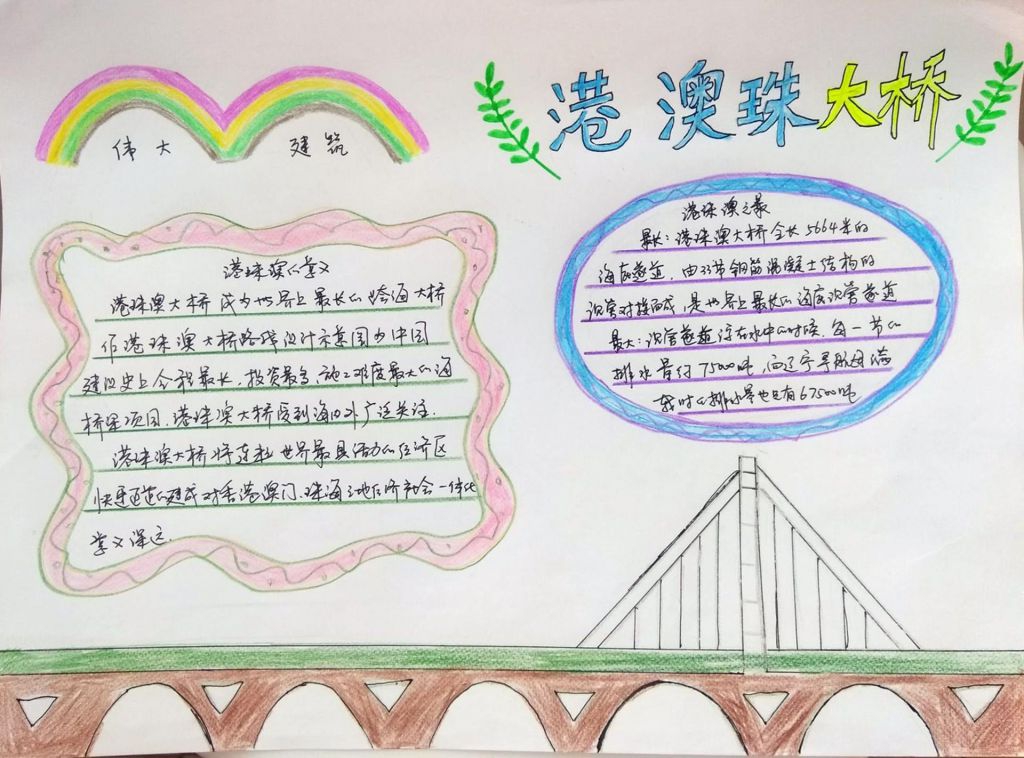 港澳珠大桥
伟大 建筑
港珠澳的意义
港珠澳大桥成为世界上最长的跨海大桥
作港珠澳大桥路线设计示意图为中国
建设史上里程最长、投资最多、施工难度最大的海
桥梁项目,港珠澳大桥受到海内外广泛关注.
港珠澳大桥将连起世界最具活力的经济区
快速通道的建成对香港澳门、珠海三地经济社会一体化
意义深远.
港珠澳之最
最长:港珠澳大桥全长5664米的
海底隧道,由33节钢筋混凝土结构的
沉管对接而成,是世界上最长的海底沉管隧道
最大:沉管隧道浮在水中的时候,每一节的
排水量约75000吨,而辽宁号航母满
载时的排水量也只有67500吨